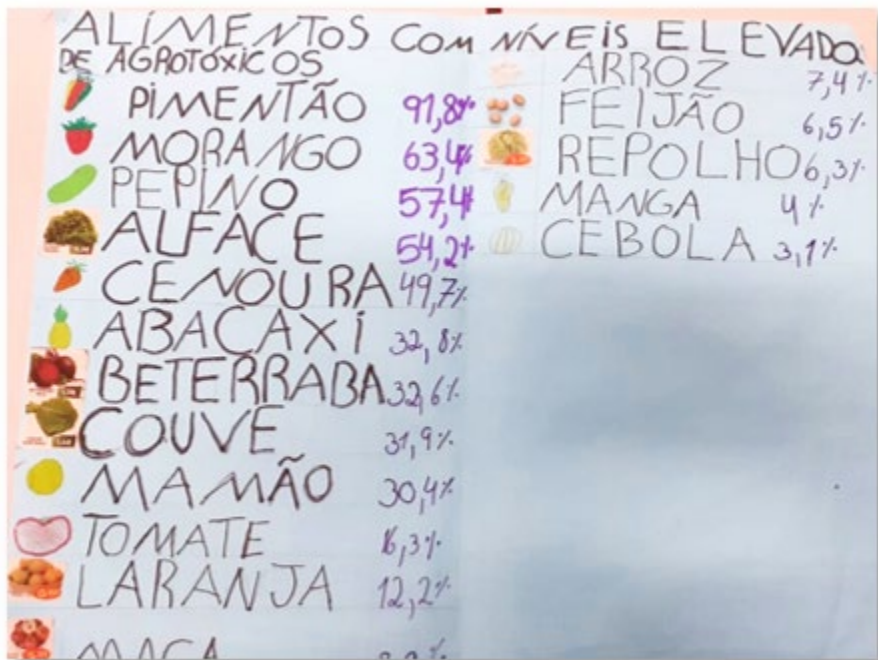 ALIMENTOS COM NÍVEIS ELEVADO
DE AGROTÓXICOS
PIMENTÃO 91,8%
MORANGO 63,4%
PEPINO 57,4%
ALFACE 54,2%
CENOURA 49,7%
ABACAXI 32,8%
BETERRABA 32,6%
COUVE 31,9%
MAMÃO 30,4%
TOMATE 16,3%
LARANJA 12,2%
MAÇA
ARROZ 7,4%
FEIJÃO 6,5%
REPOLHO 6,3%
MANGA 4%
CEBOLA 3,1%